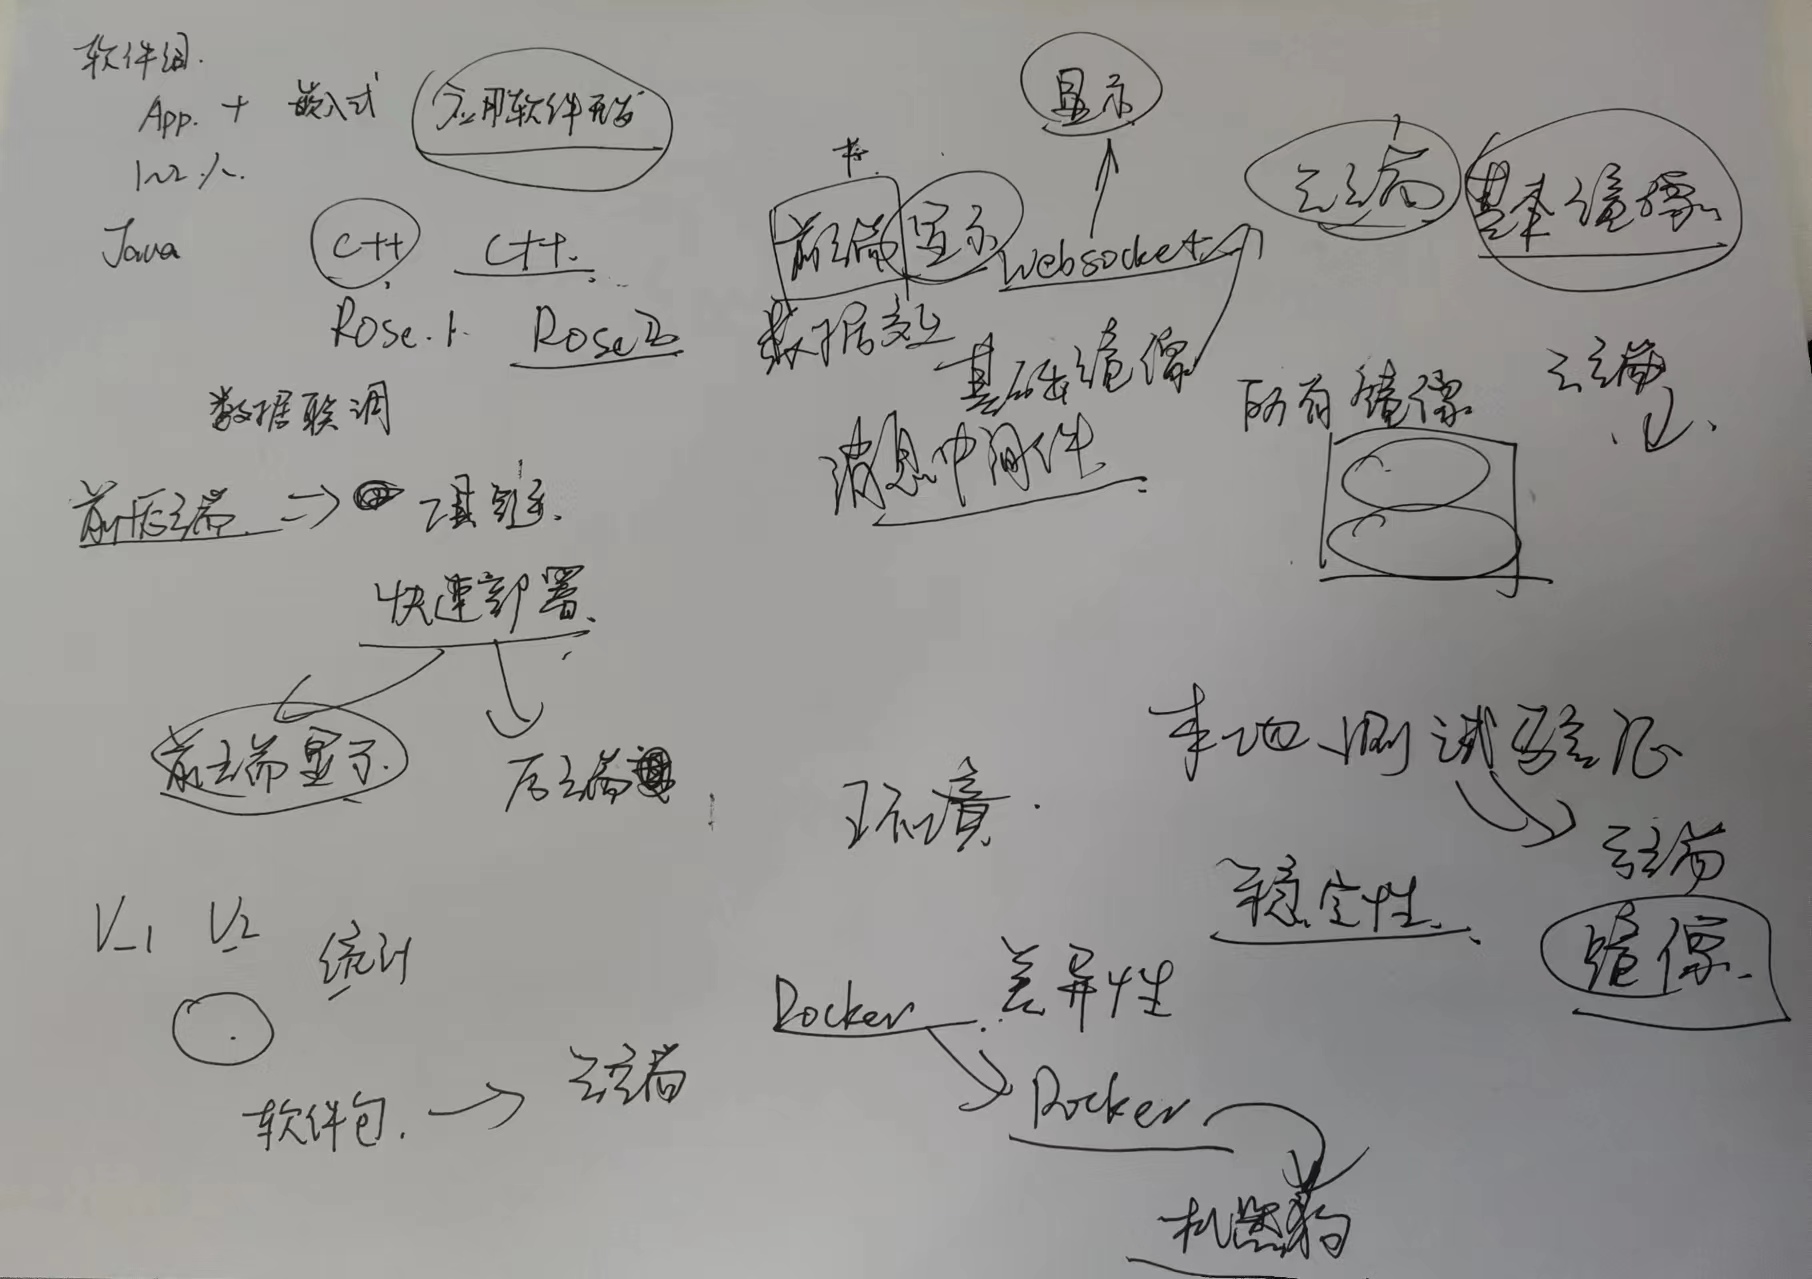 软件组.
App. + 嵌入式 应用软件开发
1~2人.
Java C++ C++.
Rose.1. Rose2
数据联调
前后端 → 工具链.
快速部署.
前端显示. 后端
V_1 V_2 统计
软件包. → 云端
显示
前端 显示 websocket
数据交互
基础镜像
消息中间件
云端 基本镜像.
所有镜像 云端
环境.
本地测试验证
云端
稳定性. 镜像.
Docker 差异性
Docker
机器狗